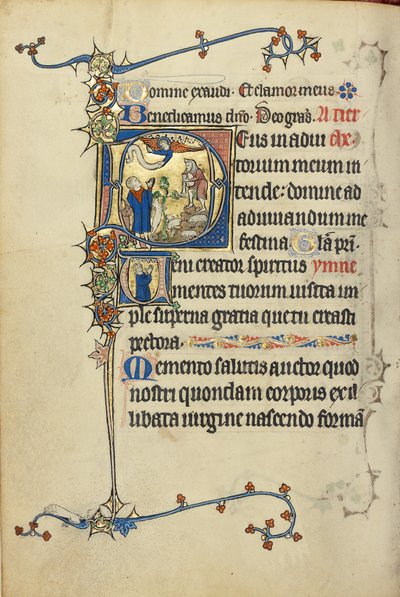 Domine exaudi. Et clamor meus
Benedicamus dño. Deo gras. A tier
Deus in adiu che
torium meum in
tende: domine ad
adiuuandum me
festina. Glã pri.
Ueni creator spiritus ymne
mentes tuorum uisita im
ple superna gratia que tu creasti
pectora.
Memento salutis auctor quod
nostri quondam corporis ex il
libata uirgine nascendo formã